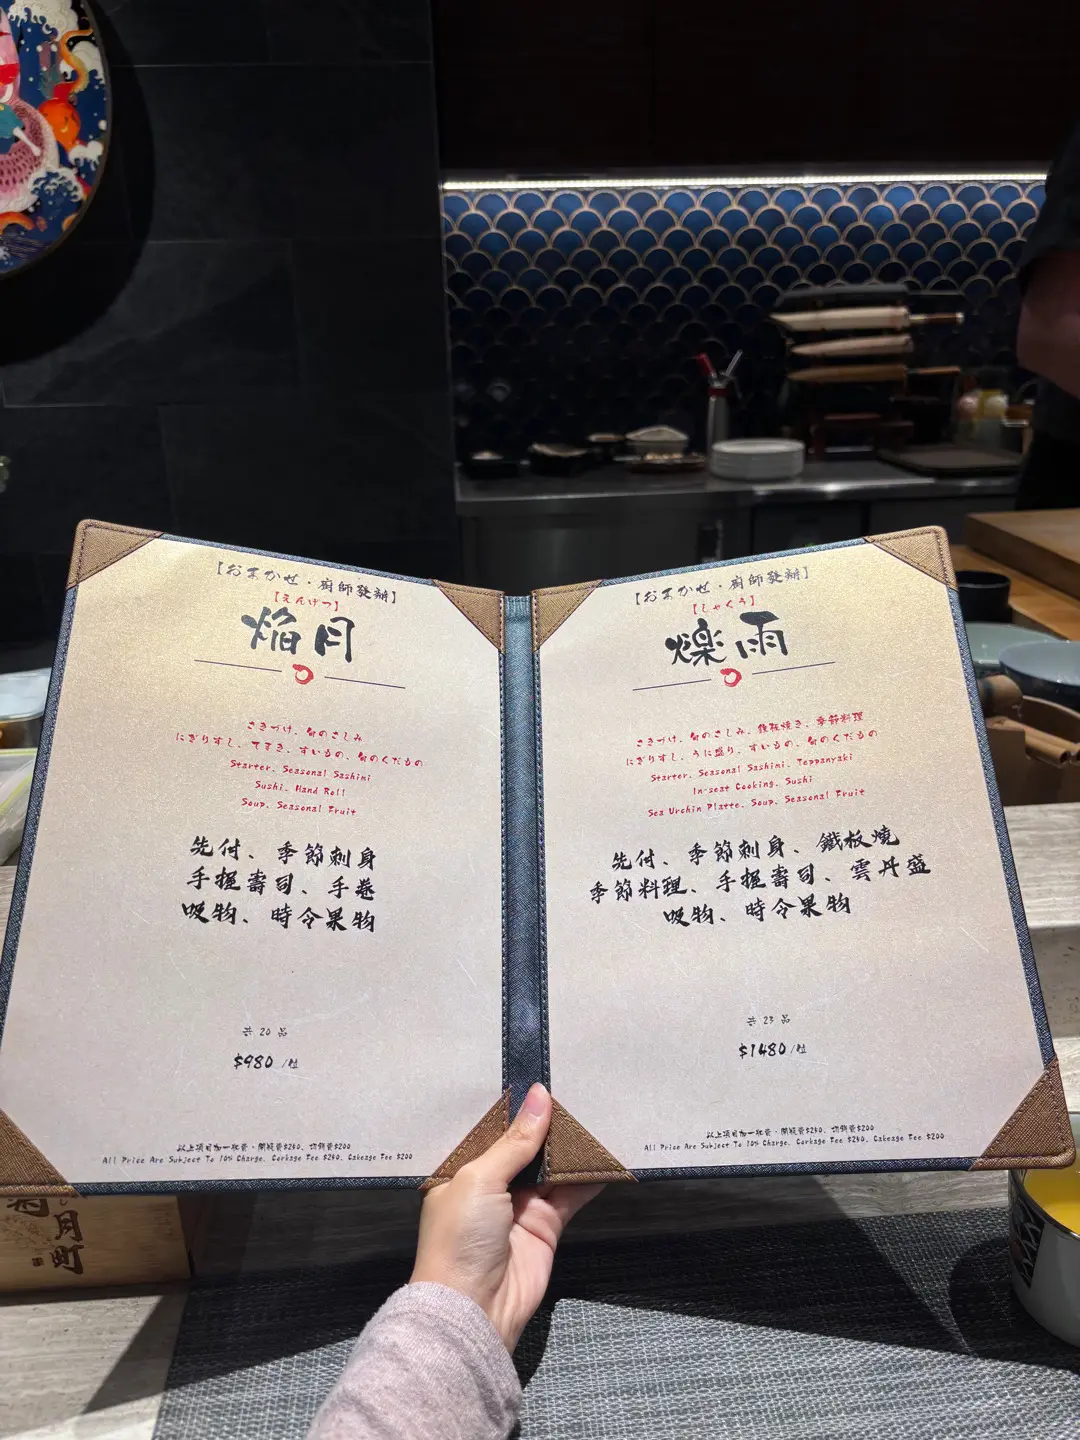 【おまかせ・廚師發辦】
【えんげつ】
焔月
さきづけ、旬のさしみ
にぎりすし、てまき、すいもの、旬のくだもの
Starter, Seasonal Sashimi
Sushi, Hand Roll
Soup, Seasonal Fruit
先付、季節刺身
手握壽司、手卷
吸物、時令果物
共 20 品
$980 /位
以上項目加一服務、開瓶費$240、切餅費$200
All Price Are Subject To 10% Charge, Corkage Fee $240, Cakeage Fee $200
【おまかせ・廚師發辦】
【しゃくう】
爍雨
さきづけ、旬のさしみ、鉄板焼き、季節料理
にぎりすし、うに盛り、すいもの、旬のくだもの
Starter, Seasonal Sashimi, Teppanyaki
In-seat Cooking, Sushi
Sea Urchin Platte, Soup, Seasonal Fruit
先付、季節刺身、鐵板燒
季節料理、手握壽司、雲丹盛
吸物、時令果物
共 23 品
$1480 /位
以上項目加一服務、開瓶費$240、切餅費$200
All Price Are Subject To 10% Charge, Corkage Fee $240, Cakeage Fee $200
月町